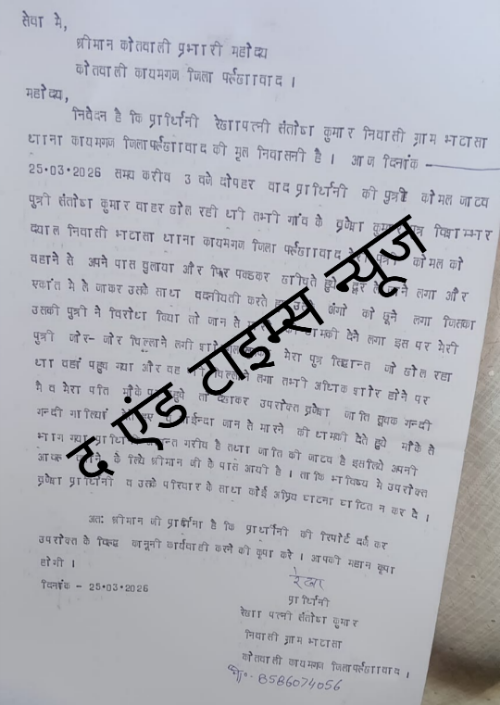 सेवा मे,
श्रीमान कोतवाली प्रभारी महोदय
कोतवाली कायमगज जिला फर्रूखाबाद ।
महोदय,
निवेदन है कि प्रार्थिनी रेखा पत्नी संतोष कुमार निवासी ग्राम भटासा
थाना कायमगज जिला फर्रूखाबाद की मूल निवासनी है । आज दिनांक
25.03.2026 समय करीव 3 वजे दोपहर वाद प्रार्थिनी की पुत्री कोमल जाटव
पुत्री संतोष कुमार वाहर खेल रही थी तभी गांव के
निवासी भटासा थाना कायमगज जिला फर्रूखाबाद कोमल को
वहाने से अपने पास वुलाया और फिर पकडकर खींचते लगा और
एकांत मे ले जाकर उसके साथ वदनीयती करते अंगो को छूने लगा जिसका
उसकी पुत्री ने विरोध किया तो जान से धमकी देने लगा इस पर मेरी
पुत्री जोर-जोर चिल्लाने लगी मेरा पुत्र सिद्धान्त जो खेल रहा
था वहां पहुच गया और वह भी लगा तभी अधिक शोर होने पर
मै व मेरा पति मौके उपरोक्त जाति सूचक गन्दी
गन्दी गालियां जान से मारने की धमकी देते हुये मौके से
भाग गया गरीव है तथा जाति की जाटव है इसलिये अपनी
के लिये श्रीमान जी के पास आयी है । ताकि भविष्य मे उपरोक्त
प्रार्थिनी व उसके परिवार के साथ कोई अप्रिय घटना घटित न कर दे ।
अतः श्रीमान जी प्रार्थना है कि प्रार्थिनी की रिपोर्ट दर्ज कर
उपरोक्त के विरूद्ध कानूनी कार्यवाली करने की कृपा करे । आपकी महान कृपा
होगी ।
दिनांक - 25.03.2026
रेखा
प्रार्थिनी
रेखा पत्नी संतोष कुमार
निवासी ग्राम भटासा
कोतवाली कायमगज जिला फर्रूखाबाद ।
मो०- 8586074056
द एंड टाइम्स न्यूज